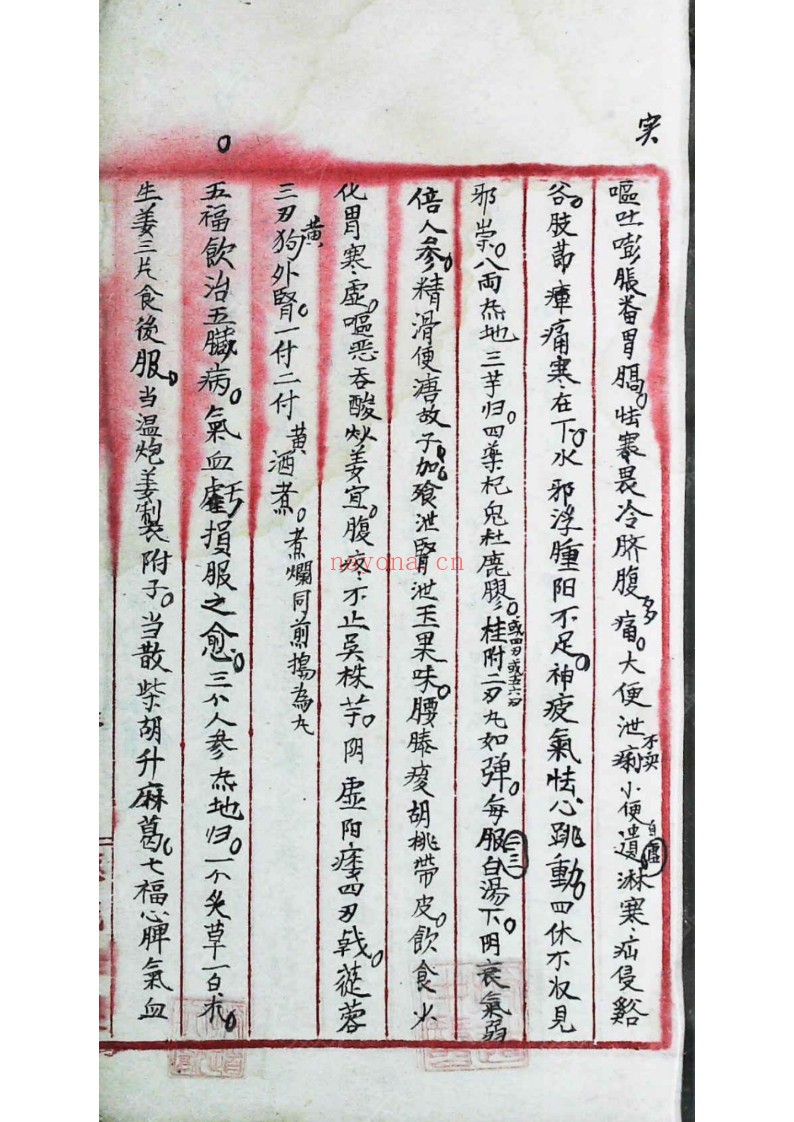 实
嘔吐嘭脹畨胃膈。怯寒畏冷脐腹多痛。大便泄痢不实小便遺自淋虛寒疝侵谿
谷。肢節痺痛寒在下。水邪浮腫阳不足。神疲氣怯心跳動。四休不収見
邪祟。八両熟地三芋归。四藥杞兔杜鹿膠。桂附二刃或四刃或五六刃丸如弹。每服二三白湯下。阴衰氣弱
倍人参。精滑便溏故子加。飱泄腎泄玉果味。腰膝痠胡桃帶皮。飲食火
化胃寒虚。嘔恶吞酸炒姜宜。腹疼不止吳株芋。阴虚阳痿四刃戟。蓯蓉
三刃黄狗外腎。一付二付黄酒煮。煮爛同煎搗為丸
五福飲治五臓病。氣血虧損服之愈。三个人参熟地归。一个炙草一白朮。
生姜三片食後服。当温炮姜製附子。当散柴胡升麻葛。七福心脾氣血
nayona.cn